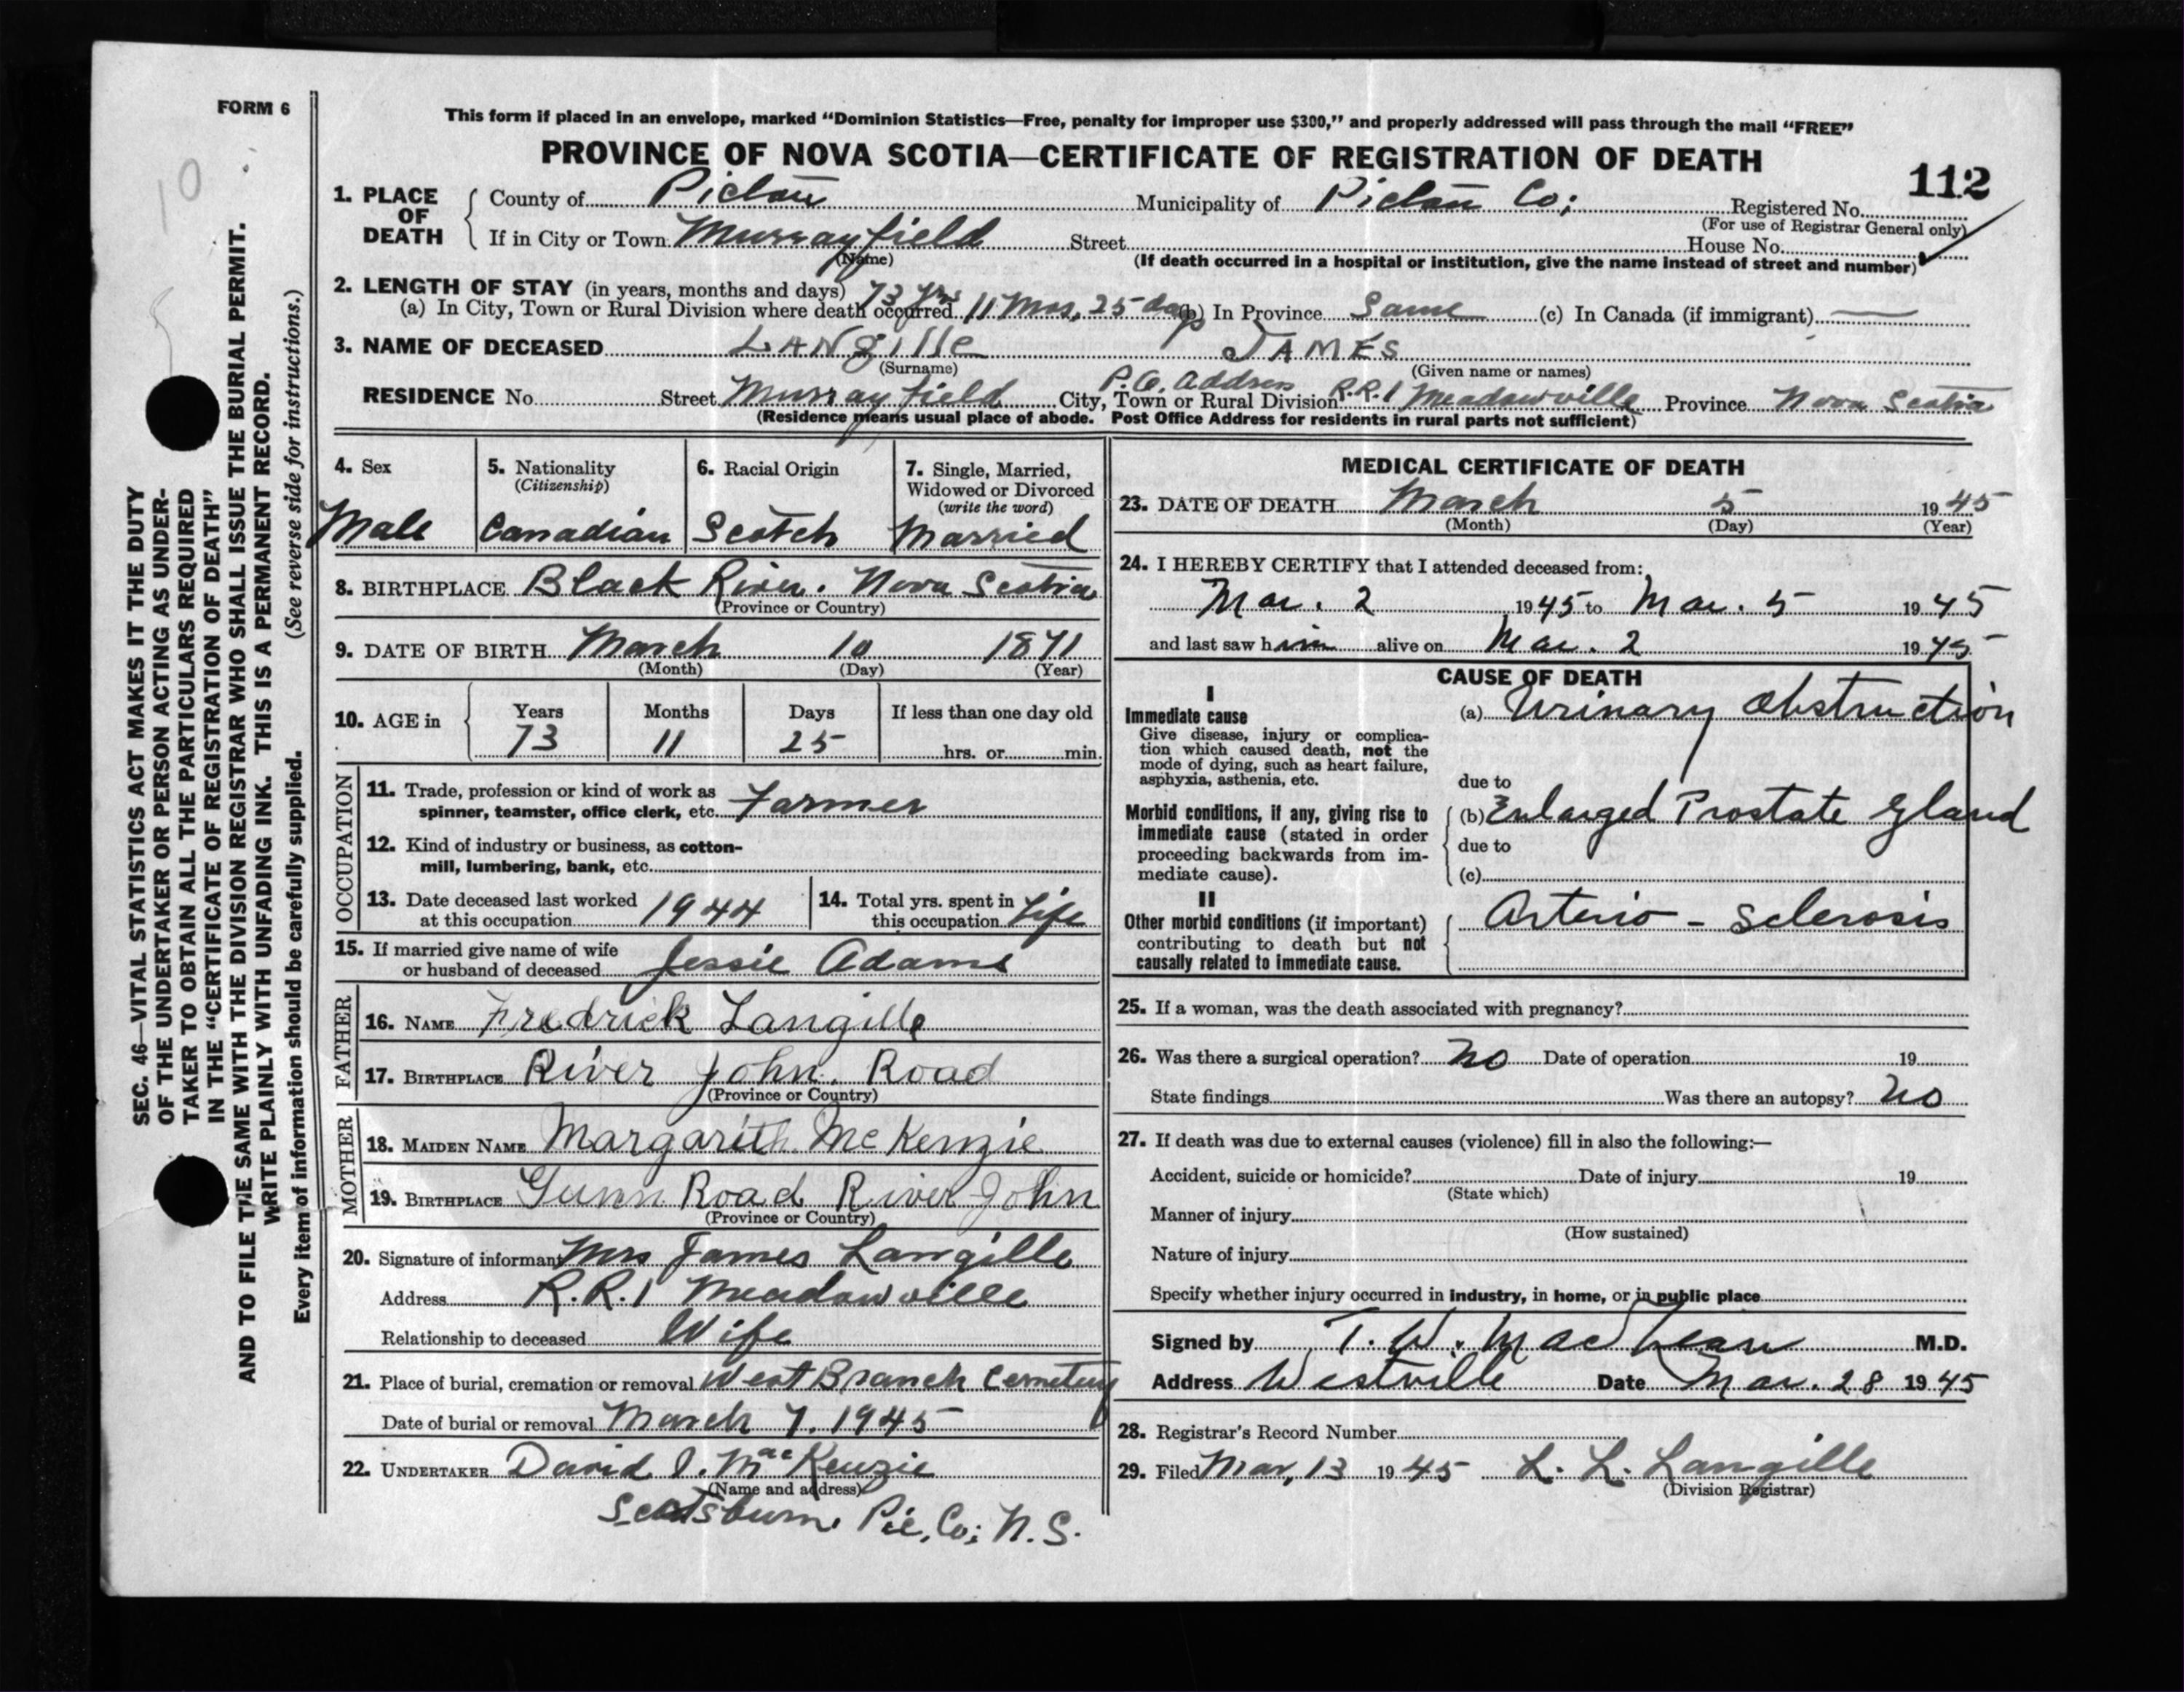 FORM 6
This form if placed in an envelope, marked “Dominion Statistics—Free, penalty for improper use $300,” and properly addressed will pass through the mail “FREE”
PROVINCE OF NOVA SCOTIA—CERTIFICATE OF REGISTRATION OF DEATH
112
10
1. PLACE OF DEATH
County of Pictou Municipality of Pictou Co; Registered No.
(For use of Registrar General only)
If in City or Town Murrayfield Street House No.
(Name) (If death occurred in a hospital or institution, give the name instead of street and number)
2. LENGTH OF STAY (in years, months and days) 73 yrs
(a) In City, Town or Rural Division where death occurred 11 Mos, 25 days (b) In Province Same (c) In Canada (if immigrant) —
3. NAME OF DECEASED LANgille JAMES
(Surname) (Given name or names)
P.O. Address
RESIDENCE No. Street Murrayfield City, Town or Rural Division R.R.1 Meadowville Province Nova Scotia
(Residence means usual place of abode. Post Office Address for residents in rural parts not sufficient)
4. Sex
Male
5. Nationality
(Citizenship)
Canadian
6. Racial Origin
Scotch
7. Single, Married,
Widowed or Divorced
(write the word)
Married
8. BIRTHPLACE Black River. Nova Scotia
(Province or Country)
9. DATE OF BIRTH March 10 1871
(Month) (Day) (Year)
10. AGE in Years Months Days If less than one day old
73 11 25 hrs. or min.
OCCUPATION
11. Trade, profession or kind of work as
spinner, teamster, office clerk, etc. Farmer
12. Kind of industry or business, as cotton-
mill, lumbering, bank, etc.
13. Date deceased last worked
at this occupation 1944
14. Total yrs. spent in
this occupation Life
15. If married give name of wife
or husband of deceased Jessie Adams
FATHER
16. NAME Fredrick Langille
17. BIRTHPLACE River John. Road
(Province or Country)
MOTHER
18. MAIDEN NAME Margarith McKenzie
19. BIRTHPLACE Gunn Road River John
(Province or Country)
20. Signature of informant Mrs James Langille
Address R.R.1 Meadowville
Relationship to deceased Wife
21. Place of burial, cremation or removal West Branch Cemetery
Date of burial or removal March 7. 1945
22. UNDERTAKER David I. MacKenzie
(Name and address)
Scotsburn. Pic. Co; N.S.
MEDICAL CERTIFICATE OF DEATH
23. DATE OF DEATH March 5 1945
(Month) (Day) (Year)
24. I HEREBY CERTIFY that I attended deceased from:
Mar. 2 1945 to Mar. 5 1945
and last saw him alive on Mar. 2 1945
CAUSE OF DEATH
I
Immediate cause
Give disease, injury or complica-
tion which caused death, not the
mode of dying, such as heart failure,
asphyxia, asthenia, etc.
(a) Urinary Obstruction
due to
Morbid conditions, if any, giving rise to
immediate cause (stated in order
proceeding backwards from im-
mediate cause).
(b) Enlarged Prostate Gland
due to
(c)
II
Other morbid conditions (if important)
contributing to death but not
causally related to immediate cause.
Arterio - sclerosis
25. If a woman, was the death associated with pregnancy?
26. Was there a surgical operation? No Date of operation 19
State findings Was there an autopsy? No
27. If death was due to external causes (violence) fill in also the following:—
Accident, suicide or homicide? Date of injury 19
(State which)
Manner of injury
(How sustained)
Nature of injury
Specify whether injury occurred in industry, in home, or in public place
Signed by T. W. MacLean M.D.
Address Westville Date Mar. 28 1945
28. Registrar's Record Number
29. Filed Mar, 13 1945 L. L. Langille
(Division Registrar)
SEC. 46—VITAL STATISTICS ACT MAKES IT THE DUTY
OF THE UNDERTAKER OR PERSON ACTING AS UNDER-
TAKER TO OBTAIN ALL THE PARTICULARS REQUIRED
IN THE “CERTIFICATE OF REGISTRATION OF DEATH”
AND TO FILE THE SAME WITH THE DIVISION REGISTRAR WHO SHALL ISSUE THE BURIAL PERMIT.
WRITE PLAINLY WITH UNFADING INK. THIS IS A PERMANENT RECORD.
Every item of information should be carefully supplied. (See reverse side for instructions.)